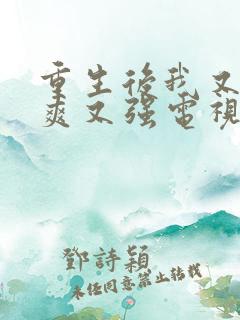 重生后我又
爽又强电视
鄧詩穎
未经同意禁止转载